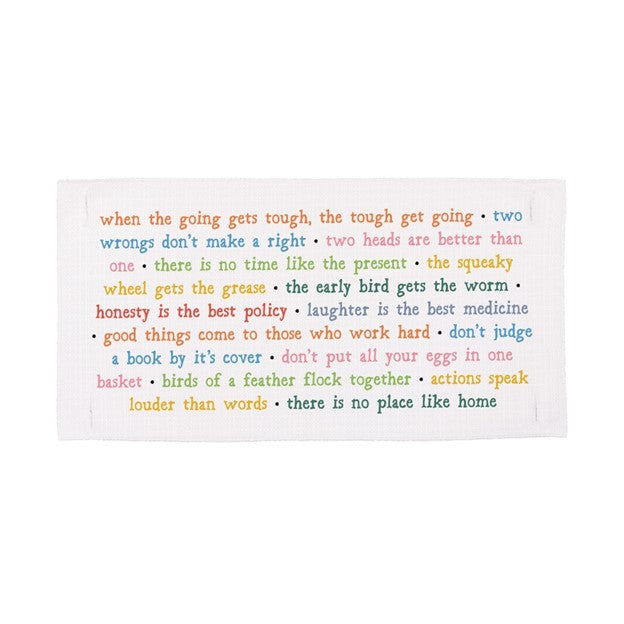 when the going gets tough, the tough get going • two
wrongs don't make a right • two heads are better than
one • there is no time like the present • the squeaky
wheel gets the grease • the early bird gets the worm •
honesty is the best policy • laughter is the best medicine
• good things come to those who work hard • don't judge
a book by it's cover • don't put all your eggs in one
basket • birds of a feather flock together • actions speak
louder than words • there is no place like home